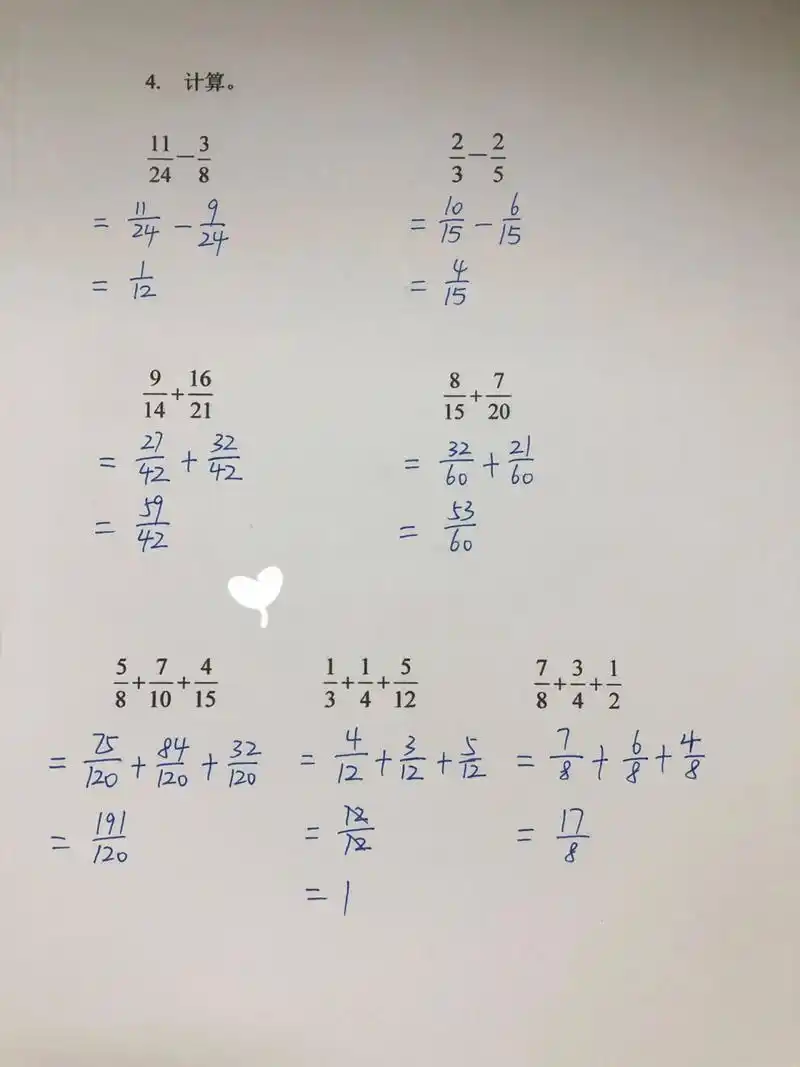 4. 计算。
11/24 - 3/8
= 11/24 - 9/24
= 1/12
2/3 - 2/5
= 10/15 - 6/15
= 4/15
9/14 + 16/21
= 27/42 + 32/42
= 59/42
8/15 + 7/20
= 32/60 + 21/60
= 53/60
5/8 + 7/10 + 4/15
= 75/120 + 84/120 + 32/120
= 191/120
1/3 + 1/4 + 5/12
= 4/12 + 3/12 + 5/12
= 12/12
= 1
7/8 + 3/4 + 1/2
= 7/8 + 6/8 + 4/8
= 17/8